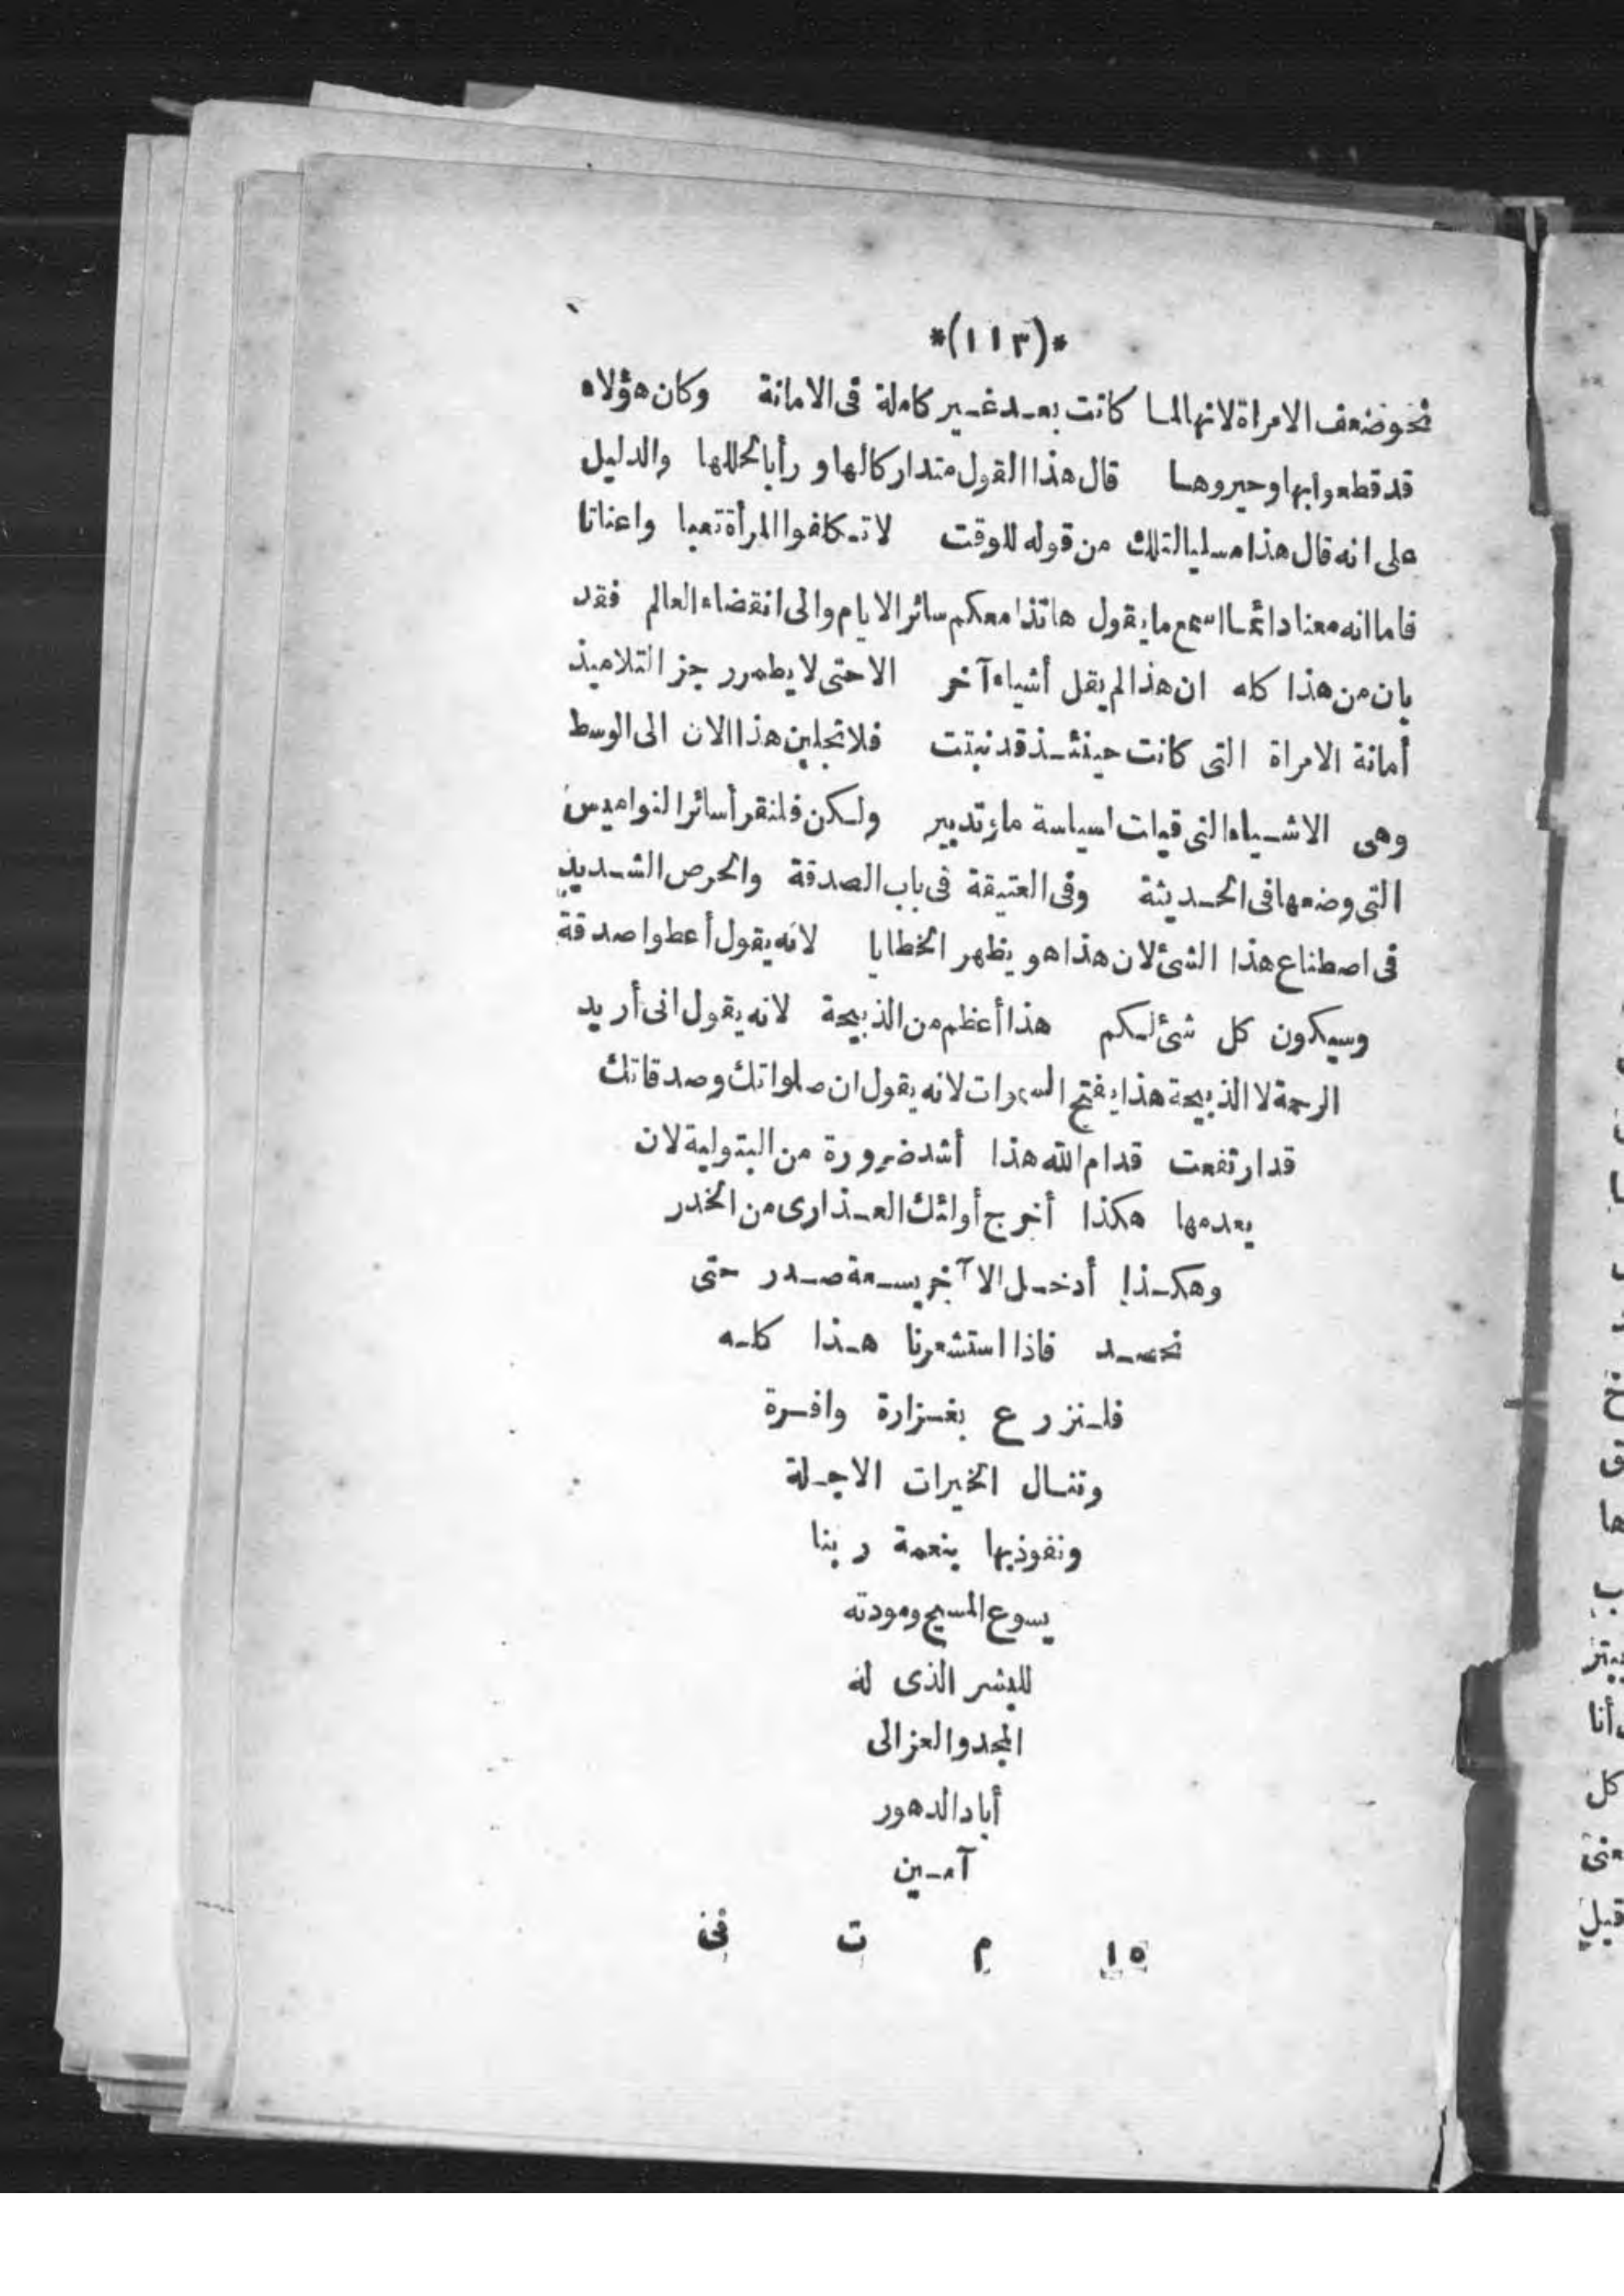 *(١١٣)*
نحو ضعف الامراة لانها لما كانت بعد غير كاملة فى الامانة وكان هؤلاء
قد قطعوا بها وحيروها قال هذا القول متداركا لها و رأبا لخللها والدليل
على انه قال هذا مسليا لتلك من قوله للوقت لا تكلفوا المرأة تعبا واعناتا
فاما انه معنا دائما اسمع ما يقول هائذا معكم سائر الايام والى انقضاء العالم فقد
بان من هذا كله ان هذا لم يقل أشياء آخر الا حتى لا يطمر رجز التلاميذ
أمانة الامراة التى كانت حينئذ قد نبتت فلا تجلين هذا الان الى الوسط
وهى الاشياء التى قيلت لسياسة ما وتدبير ولكن فلنقرأ سائر النواميس
التى وضعها فى الحديثة وفى العتيقة فى باب الصدقة والحرص الشديد
فى اصطناع هذا الشئ لان هذا هو يظهر الخطايا لانه يقول أعطوا صدقة
وسيكون كل شئ لكم هذا أعظم من الذبيحة لانه يقول انى أريد
الرحمة لا الذبيحة هذا يفتح السموات لانه يقول ان صلواتك وصدقاتك
قد ارتفعت قدام الله هذا أشد ضرورة من البتولية لان
بعدمها هكذا أخرج أولئك العذارى من الخدر
وهكذا أدخل الا آخر بسعة صدر حتى
نحصد فاذا استشعرنا هذا كله
فلنزرع بغزارة وافرة
وننال الخيرات الاجلة
ونفوذ بها بنعمة ربنا
يسوع المسيح ومودته
للبشر الذى له
المجد والعز الى
أباد الدهور
آمين
١٥ م ت فى